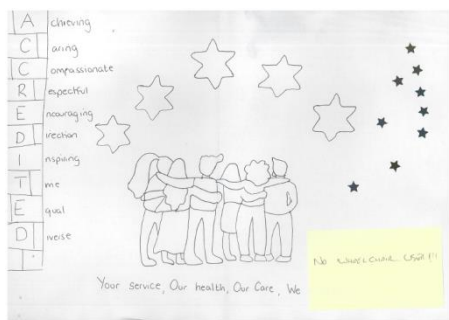 Achieving
Caring
Compassionate
Respectful
Encouraging
Direction
Inspiring
Time
Equal
Diverse
Your service, Our health, Our Care, We
No WHEELCHAIR USER!!!